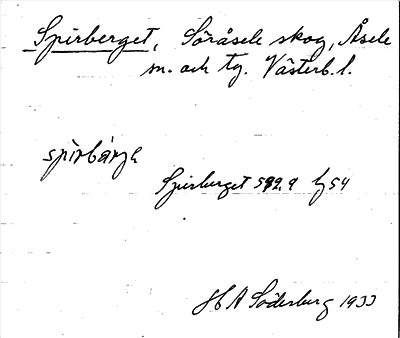 Spirberget, Söråsele skog, Åsele
sn. och tg. Västerb. l.
Spirberget 592.9
H A Söderberg 1933